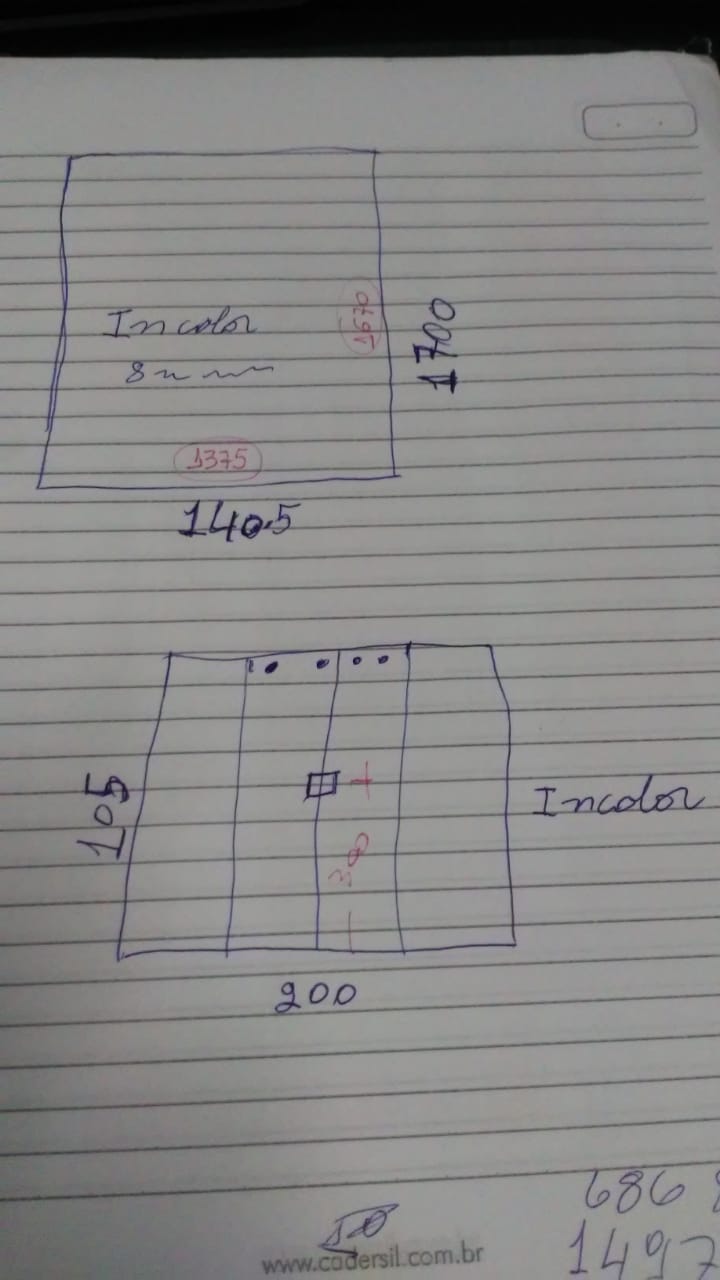 Incolor
8mm
1670
1700
1375
140.5
105
300
Incolor
200
686
1497
www.cadersil.com.br